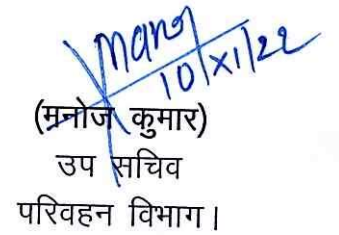 Manoj
10/XI/22
(मनोज कुमार)
उप सचिव
परिवहन विभाग।